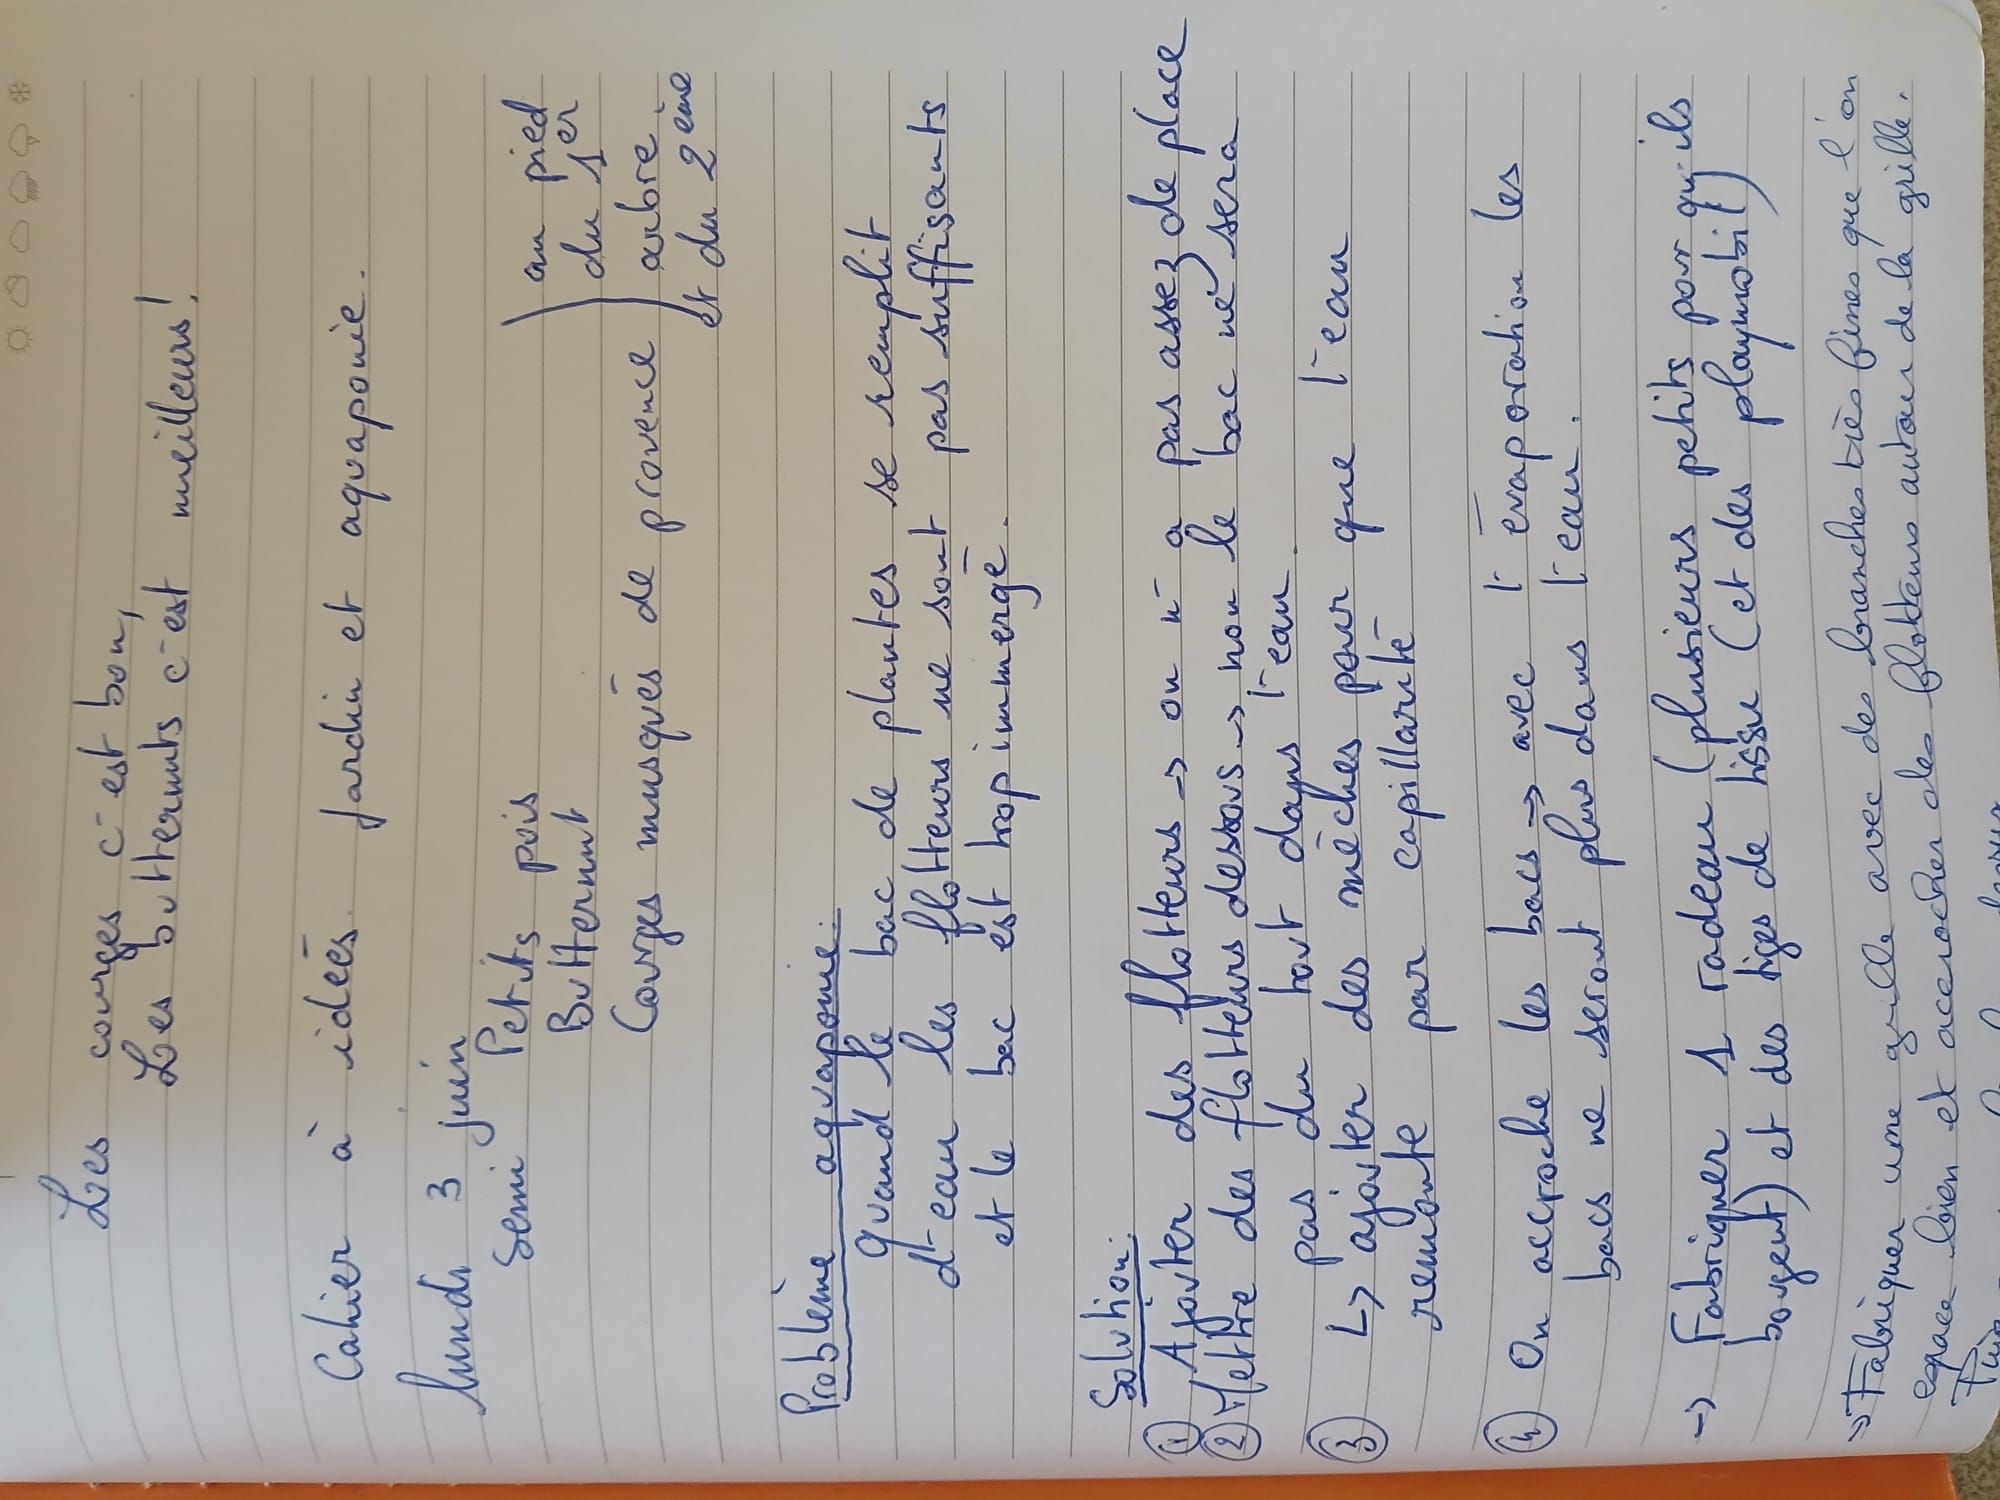 Les courges c'est bon,
Les butternuts c'est meilleurs!
Cahier à idées. Jardin et aquaponie.
lundi 3 juin
Semi Petits pois
Butternut
Courges musqués de provence
au pied
du 1er
arbre
et du 2ème
Problème aquaponie:
quand le bac de plantes se remplit
d'eau les flotteurs ne sont pas suffisants
et le bac est trop immergé.
Solution:
① Ajouter des flotteurs → on n'a pas assez de place
② Mettre des flotteurs dessous → non le bac ne sera
pas du tout dans l'eau.
③ ↳ ajouter des mèches pour que l'eau
remonte par capillarité
④ On accroche les bacs → avec l'évaporation les
bacs ne seront plus dans l'eau.
→ Fabriquer 1 radeau (plusieurs petits pour qu'ils
bougent) et des tiges de tissu (et des playmobil)
→ Fabriquer une grille avec des branches très fines que l'on
espace bien et accrocher des flotteurs autour de la grille.
Puis